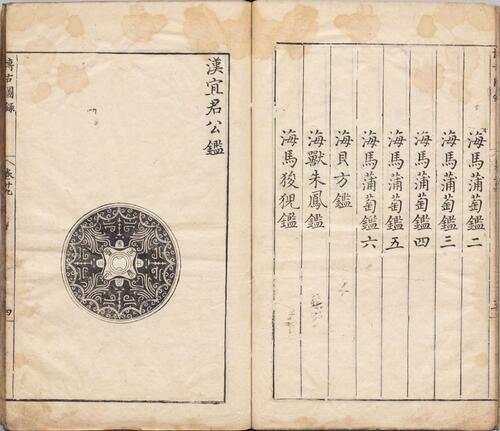 海馬蒲萄鑑二
海馬蒲萄鑑三
海馬蒲萄鑑四
海馬蒲萄鑑五
海馬蒲萄鑑六
海貝方鑑
海獸朱鳳鑑
海馬狻猊鑑
漢宜君公鑑
博古圖録
卷廿九
四